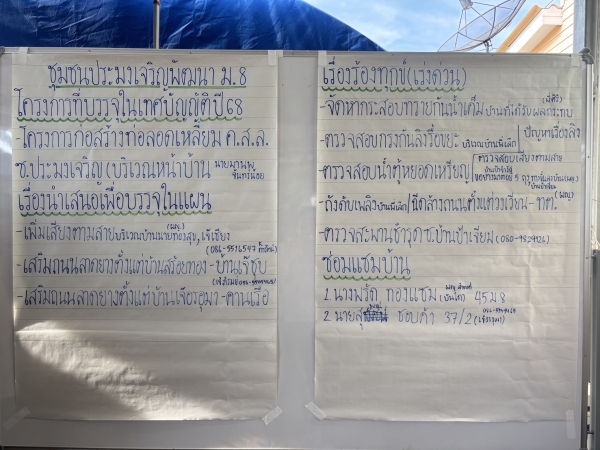 ชุมชนประมงเจริญพัฒนา ม.8
โครงการที่บรรจุในเทศบัญญัติปี68
-โครงการก่อสร้างท่อลอดเหลี่ยม ค.ส.ล.
ซ.ประมงเจริญ (บริเวณหน้าบ้าน
เรื่องนำเสนอเพื่อบรรจุในแผน
-เพิ่มเสียงตามสายบริเวณบ้านนายทองสุข, เจ๊เขียง
-เสริมถนนลาดยางตั้งแต่บ้านสร้อยทอง-บ้านเจ๊ซุ้บ
-เสริมถนนลาดยางตั้งแต่บ้านเจ๊อรอุมา-คานเรือ
เรื่องร้องทุกข์(เร่งด่วน)
-จัดหากระสอบทรายกันน้ำเค็ม บ้านที่ได้รับผลกระทบ
-ตรวจสอบกรงกันลิงรื้อขยะ บริเวณบ้านพี่เล็ก ปัญหาเรื่องลิง
-ตรวจสอบน้ำตู้หยอดเหรียญ ตรวจสอบเสียงตามสาย
-ถังดับเพลิง บ้านพี่เล็ก/ฉีดล้างถนนตั้งแต่วงเวียน-ทต.
-ตรวจสะพานชำรุด ซ.บ้านป้าเจียม
ซ่อมแซมบ้าน
1. นางพรัด ทองแซม 45 ม 8
2. นายสุ ชอบค้า 37/2